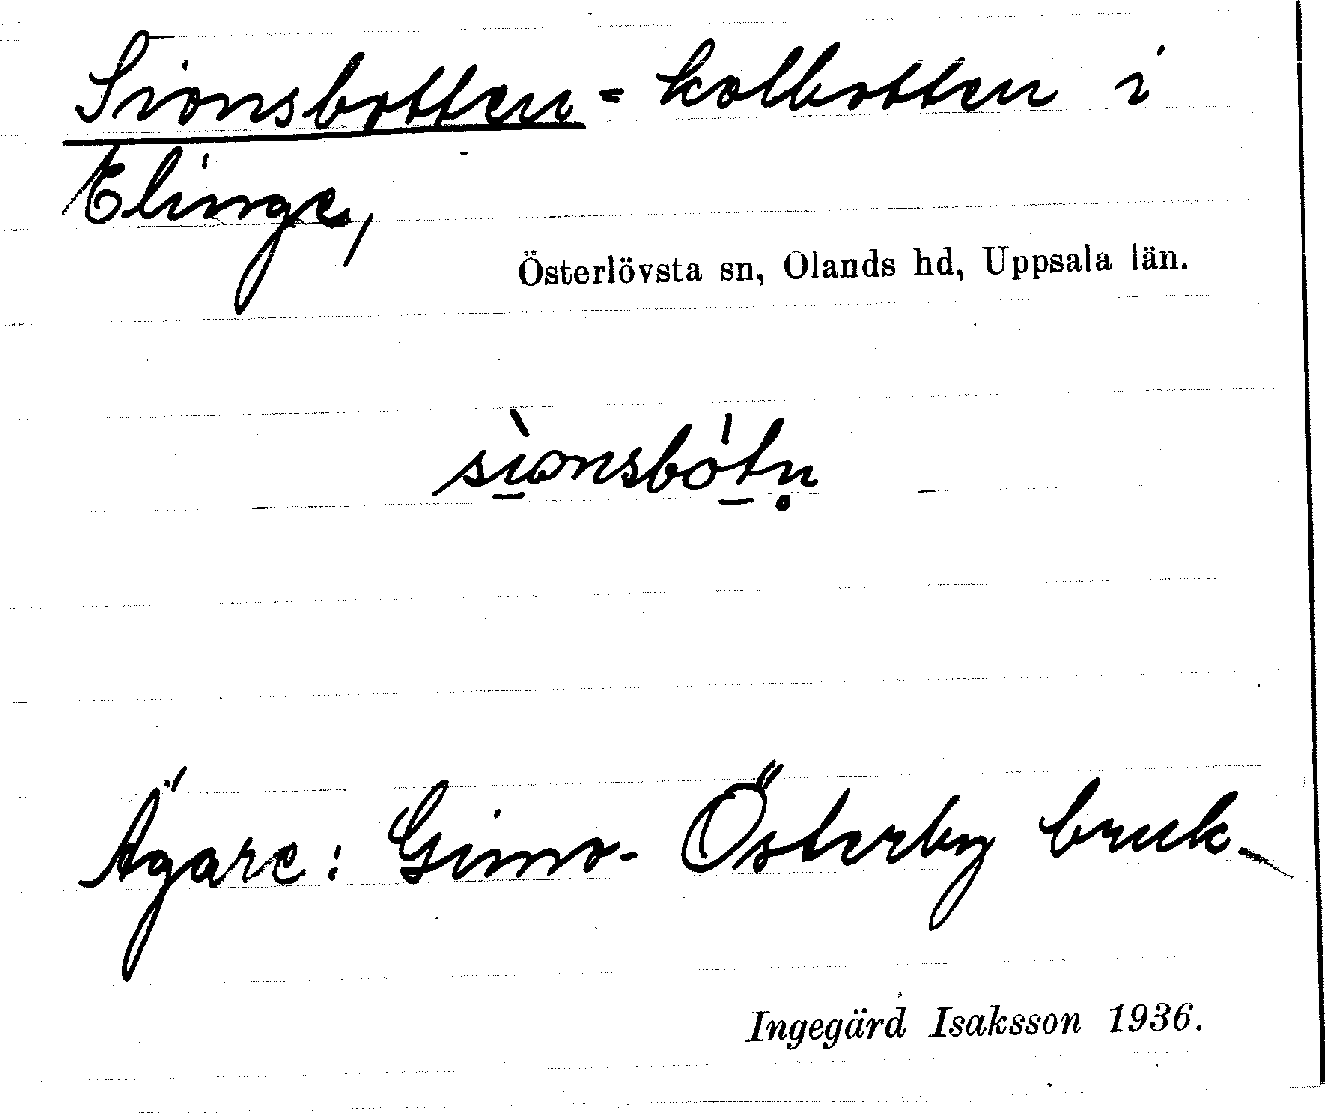 Sionsbotten = kolbotten i
Elinge,
Österlövsta sn, Olands hd, Uppsala län.
sìonsbót̠ṇ
Ägare: Gimo-Österby bruk
Ingegärd Isaksson 1936.